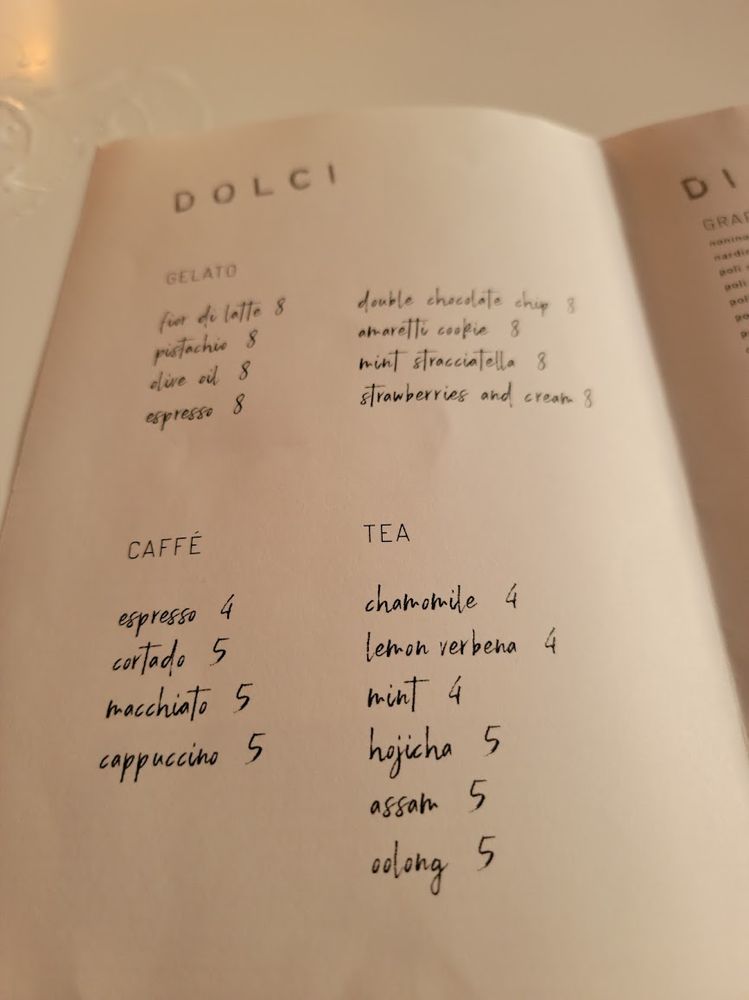 DOLCI
GELATO
fior di latte 8
pistachio 8
olive oil 8
espresso 8
double chocolate chip 8
amaretti cookie 8
mint stracciatella 8
strawberries and cream 8
CAFFÉ
espresso 4
cortado 5
macchiato 5
cappuccino 5
TEA
chamomile 4
lemon verbena 4
mint 4
hojicha 5
assam 5
oolong 5
DI
GRAP
nonino
nardi
poli
poli
pol
po
p